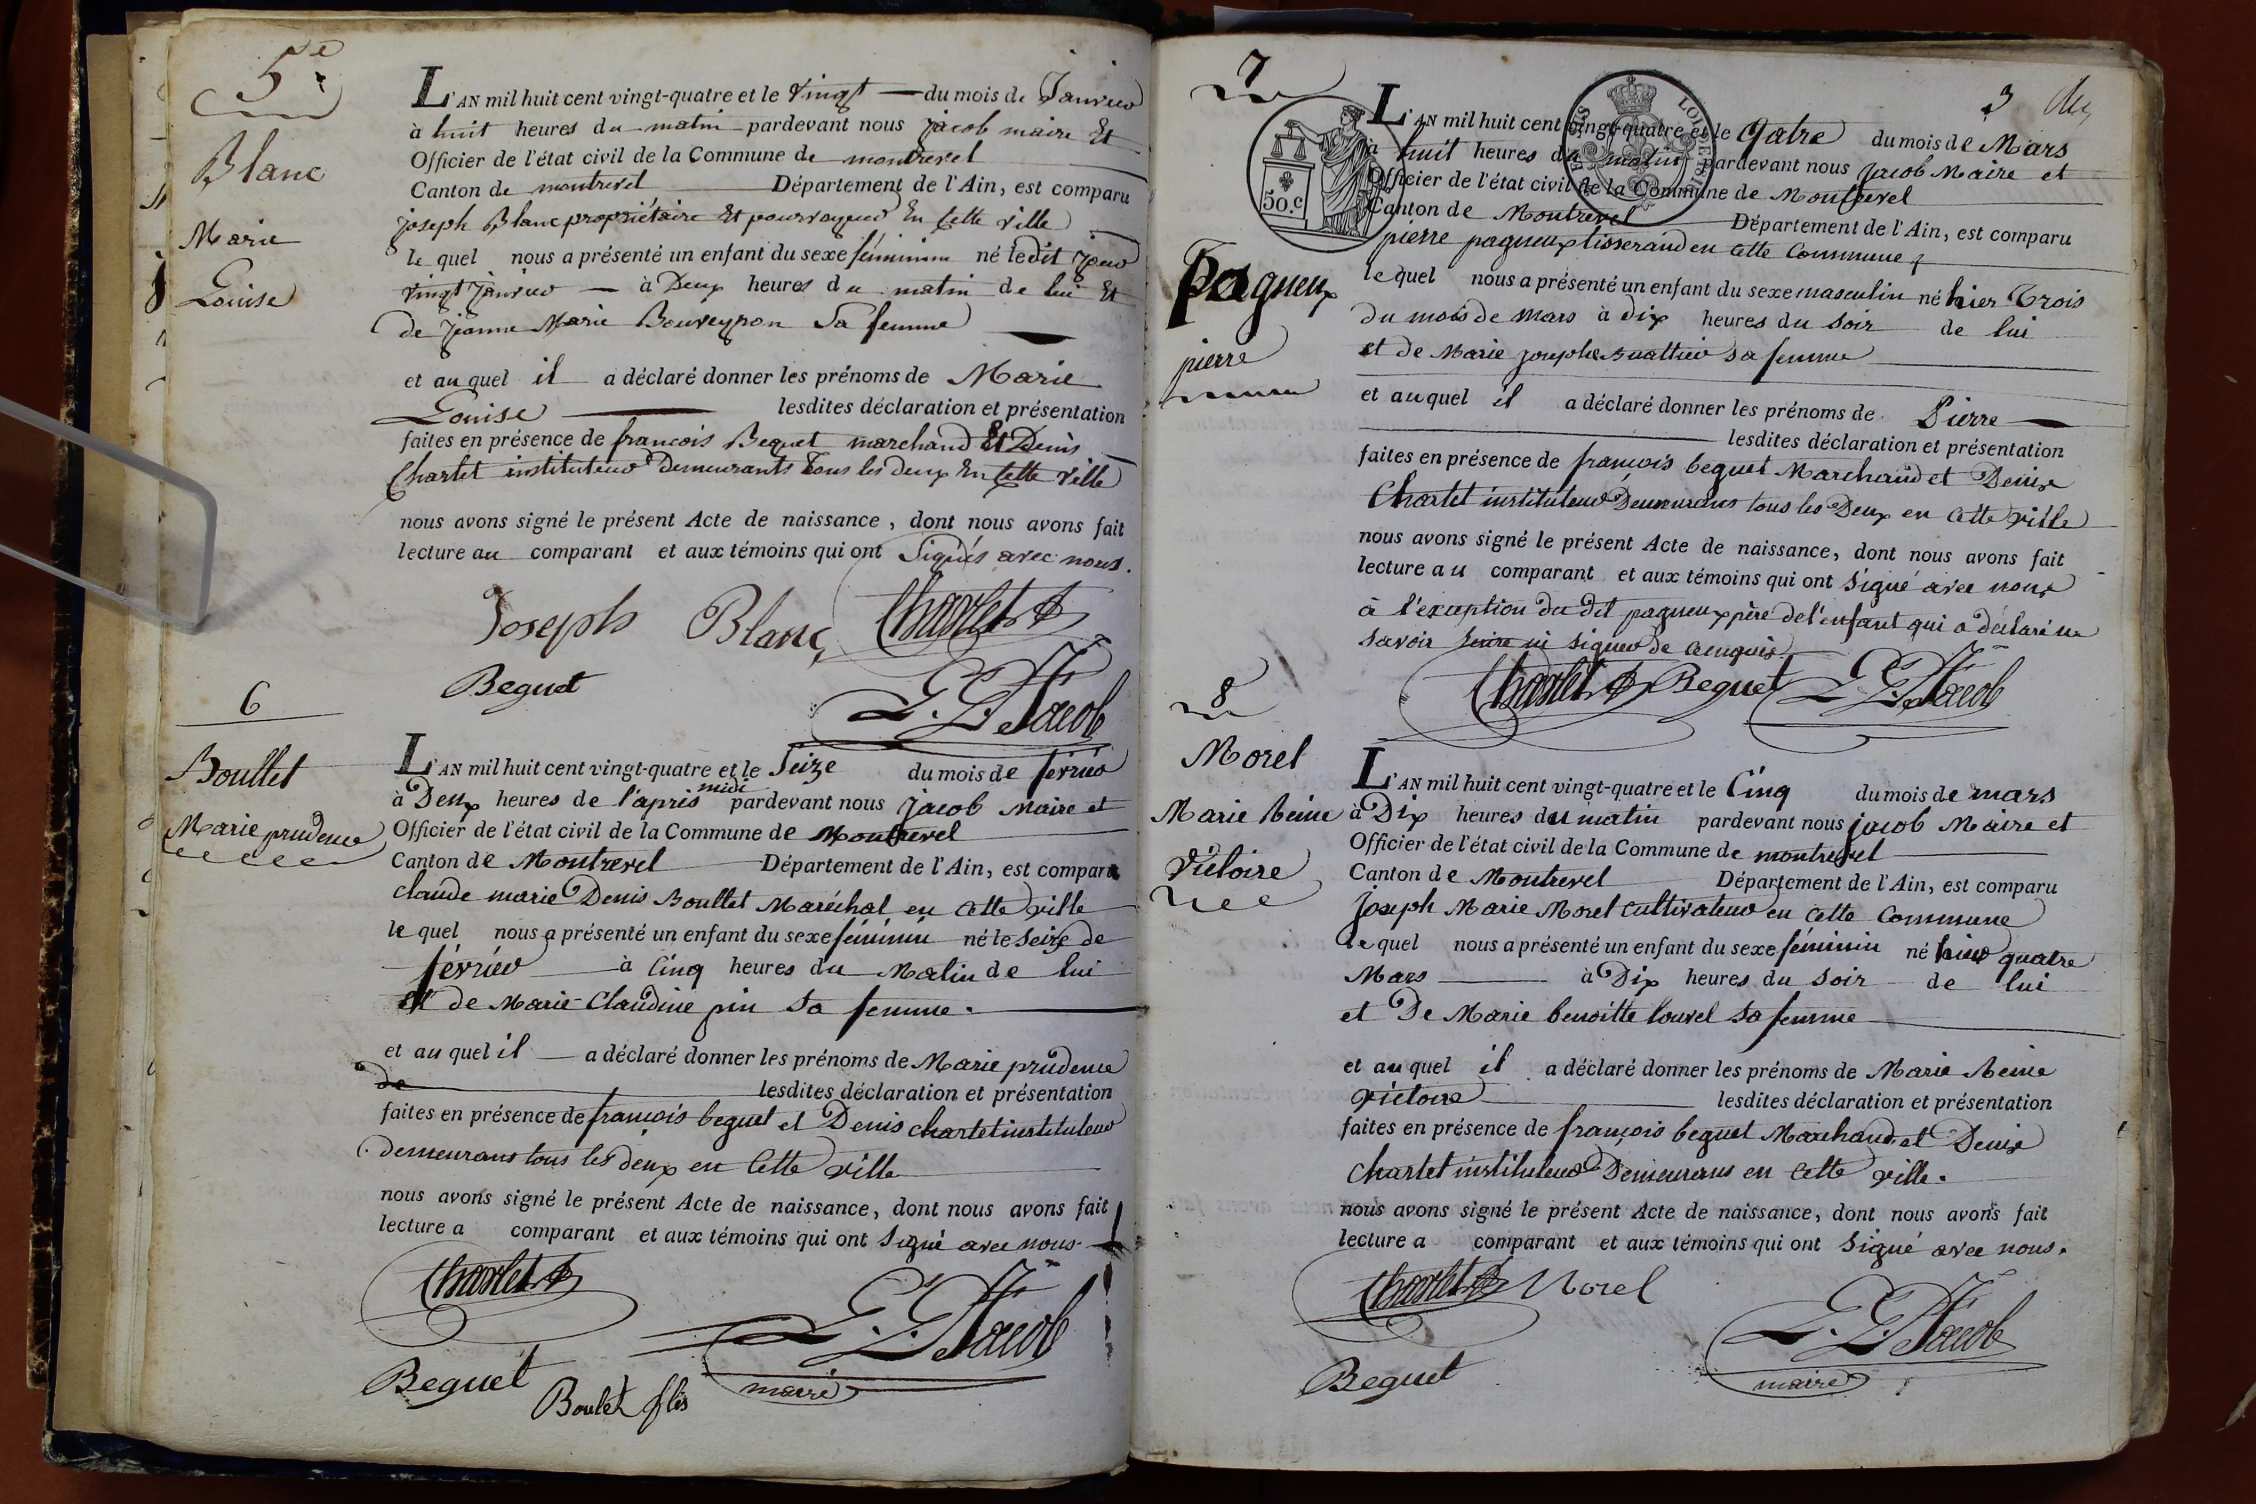 5e
Blanc
Marie
Louise
L'AN mil huit cent vingt-quatre et le vingt du mois de Janvier
à huit heures du matin pardevant nous jacob maire Et
Officier de l'état civil de la Commune de montrevel
Canton de montrevel Département de l'Ain, est comparu
joseph Blanc propriétaire Et pourvoyeur En Cette ville
le quel nous a présenté un enfant du sexe féminimm né ledit jour
vingt janvier à Deux heures du matin de lui Et
de jeanne Marie Bouveyron Sa femme
et au quel il a déclaré donner les prénoms de Marie
Louise lesdites déclaration et présentation
faites en présence de francois Bequet marchand Et Denis
Chartet instituteur Demeurants Tous les deux En Cette ville
nous avons signé le présent Acte de naissance, dont nous avons fait
lecture au comparant et aux témoins qui ont Signés avec nous.
Joseph Blanc
Beguet
Jacob
6
Boullet
Marie prudence
L'AN mil huit cent vingt-quatre et le Seize du mois de février
à Deux heures de l'après midi pardevant nous jacob Maire et
Officier de l'état civil de la Commune de Montrevel
Canton de Montrevel Département de l'Ain, est comparu
claude marie Denis Boullet Maréchal en cette ville
le quel nous a présenté un enfant du sexe féminin né le seize de
février à Cinq heures du Matin de lui
et de Marie-Claudine pin sa femme.
et au quel il a déclaré donner les prénoms de Marie prudence
de lesdites déclaration et présentation
faites en présence de francois beguet et Denis chartet instituteur
demeurans tous les deux en Cette ville
nous avons signé le présent Acte de naissance, dont nous avons fait
lecture a comparant et aux témoins qui ont Signé avec nous.
Jacob
Beguet
Boulet fils
maire
3
7
50.C
Pagneux
pierre
L'AN mil huit cent vingt-quatre et le Qatre du mois de Mars
à huit heures du matin pardevant nous jacob Maire et
Officier de l'état civil de la Commune de Montrevel
Canton de Montrevel Département de l'Ain, est comparu
pierre pagneux tisserand en cette Commune
le quel nous a présenté un enfant du sexe masculin né hier Trois
du mois de mars à dix heures du soir de lui
et de Marie josephe Buattier sa femme
et au quel il a déclaré donner les prénoms de Pierre
lesdites déclaration et présentation
faites en présence de francois beguet Marchand et Denis
Chartet instituteur Demeurans tous les Deux en Cette ville
nous avons signé le présent Acte de naissance, dont nous avons fait
lecture au comparant et aux témoins qui ont signé avec nous
à l'exception du dit pagneux père de l'enfant qui a déclaré ne
savoir Ecrire ni signer de ce enquis
Beguet
Jacob
8
Morel
Marie Reine
Victoire
L'AN mil huit cent vingt-quatre et le Cinq du mois de mars
à Dix heures du matin pardevant nous jacob Maire et
Officier de l'état civil de la Commune de montrevel
Canton de Montrevel Département de l'Ain, est comparu
joseph Marie Morel Cultivateur en Cette Commune
le quel nous a présenté un enfant du sexe féminin né hier quatre
Mars à Dix heures du soir de lui
et De Marie benoitte louvel sa femme
et au quel il a déclaré donner les prénoms de Marie Reine
Victoire lesdites déclaration et présentation
faites en présence de françois beguet Marchand et Denis
Chartet instituteur Demeurans en Cette ville.
nous avons signé le présent Acte de naissance, dont nous avons fait
lecture a comparant et aux témoins qui ont signé avec nous.
Morel
Jacob
Beguet
maire